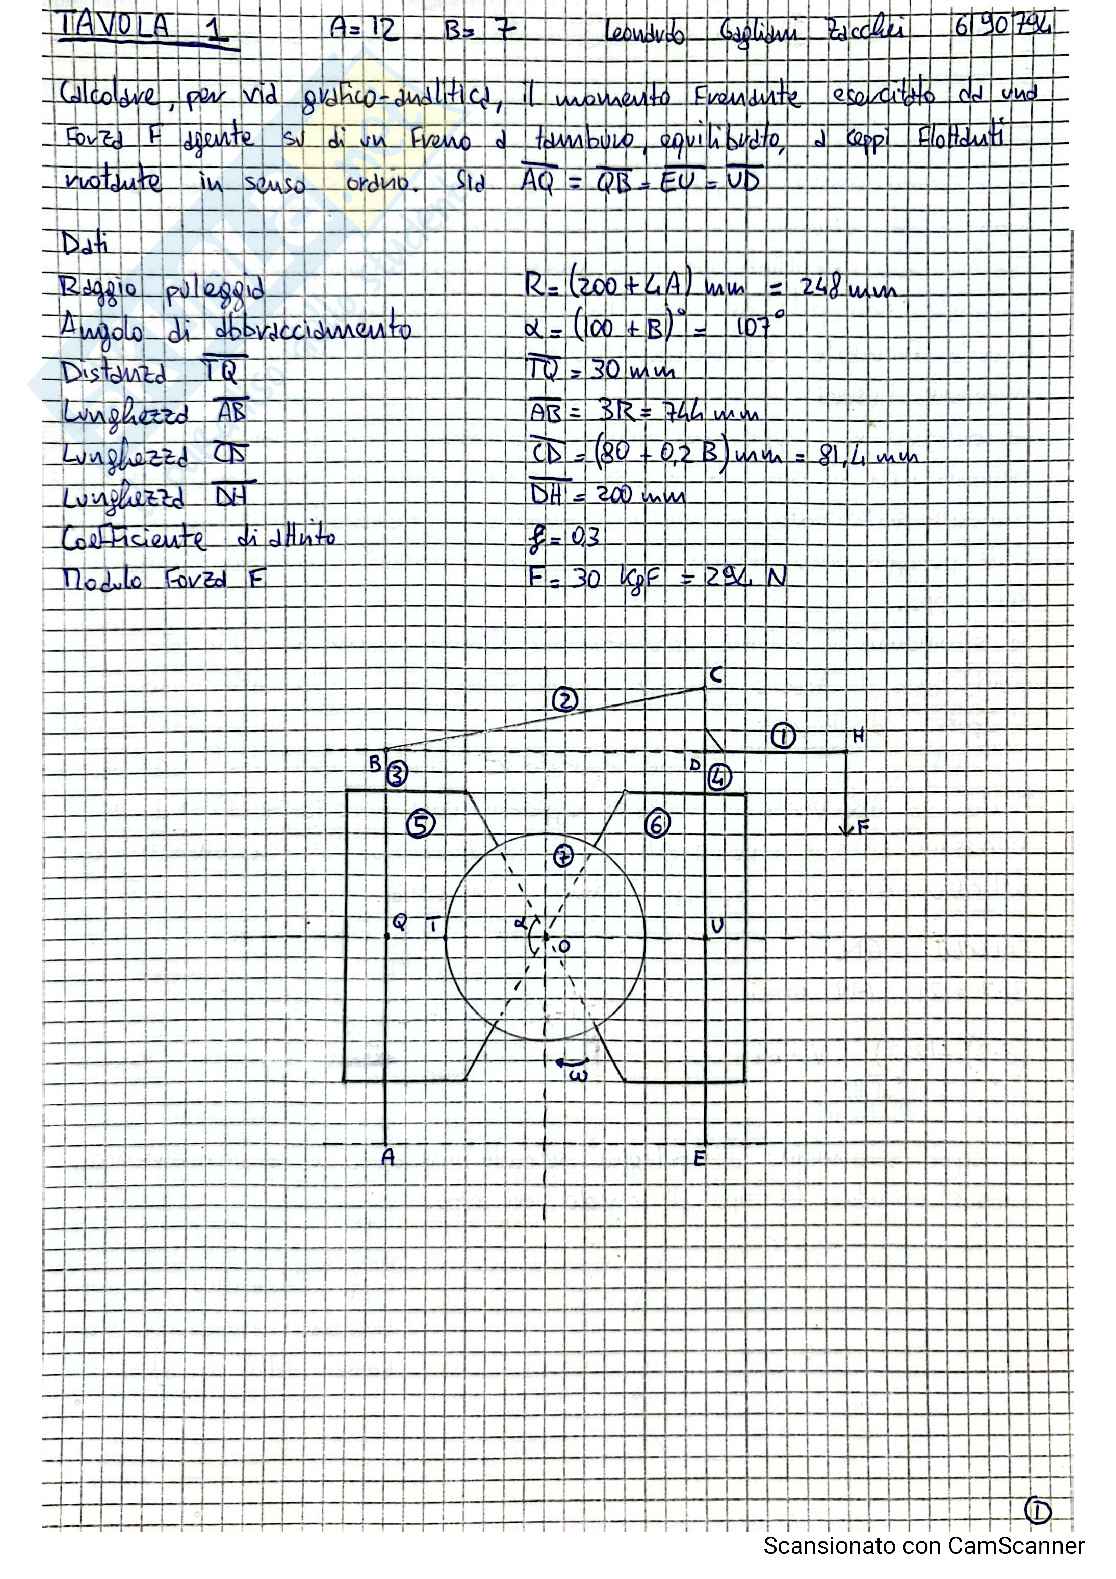 TAVOLA 1 A=12 B=7 Leonardo Gagliani Zacchei 6190794
Calcolare, per via grafico-analitica, il momento frenante esercitato da una
Forza F agente su di un Freno a tamburo, equilibrato, a ceppi Flottanti
ruotante in senso orario. Sia AQ = QB = EU = UD
Dati
Raggio puleggia R=(200+4A) mm = 248 mm
Angolo di abbracciamento α=(100+B)° = 107°
Distanza TQ TQ = 30 mm
Lunghezza AB AB = 3R = 744 mm
Lunghezza CD CD = (80+0,2B) mm = 81,4 mm
Lunghezza DH DH = 200 mm
Coefficiente di attrito f = 0,3
Modulo Forza F F = 30 KgF = 294 N
C
2
1 H
B 3 D 4
5 6 F
7
Q T α O U
ω
A E
1
Scansionato con CamScanner